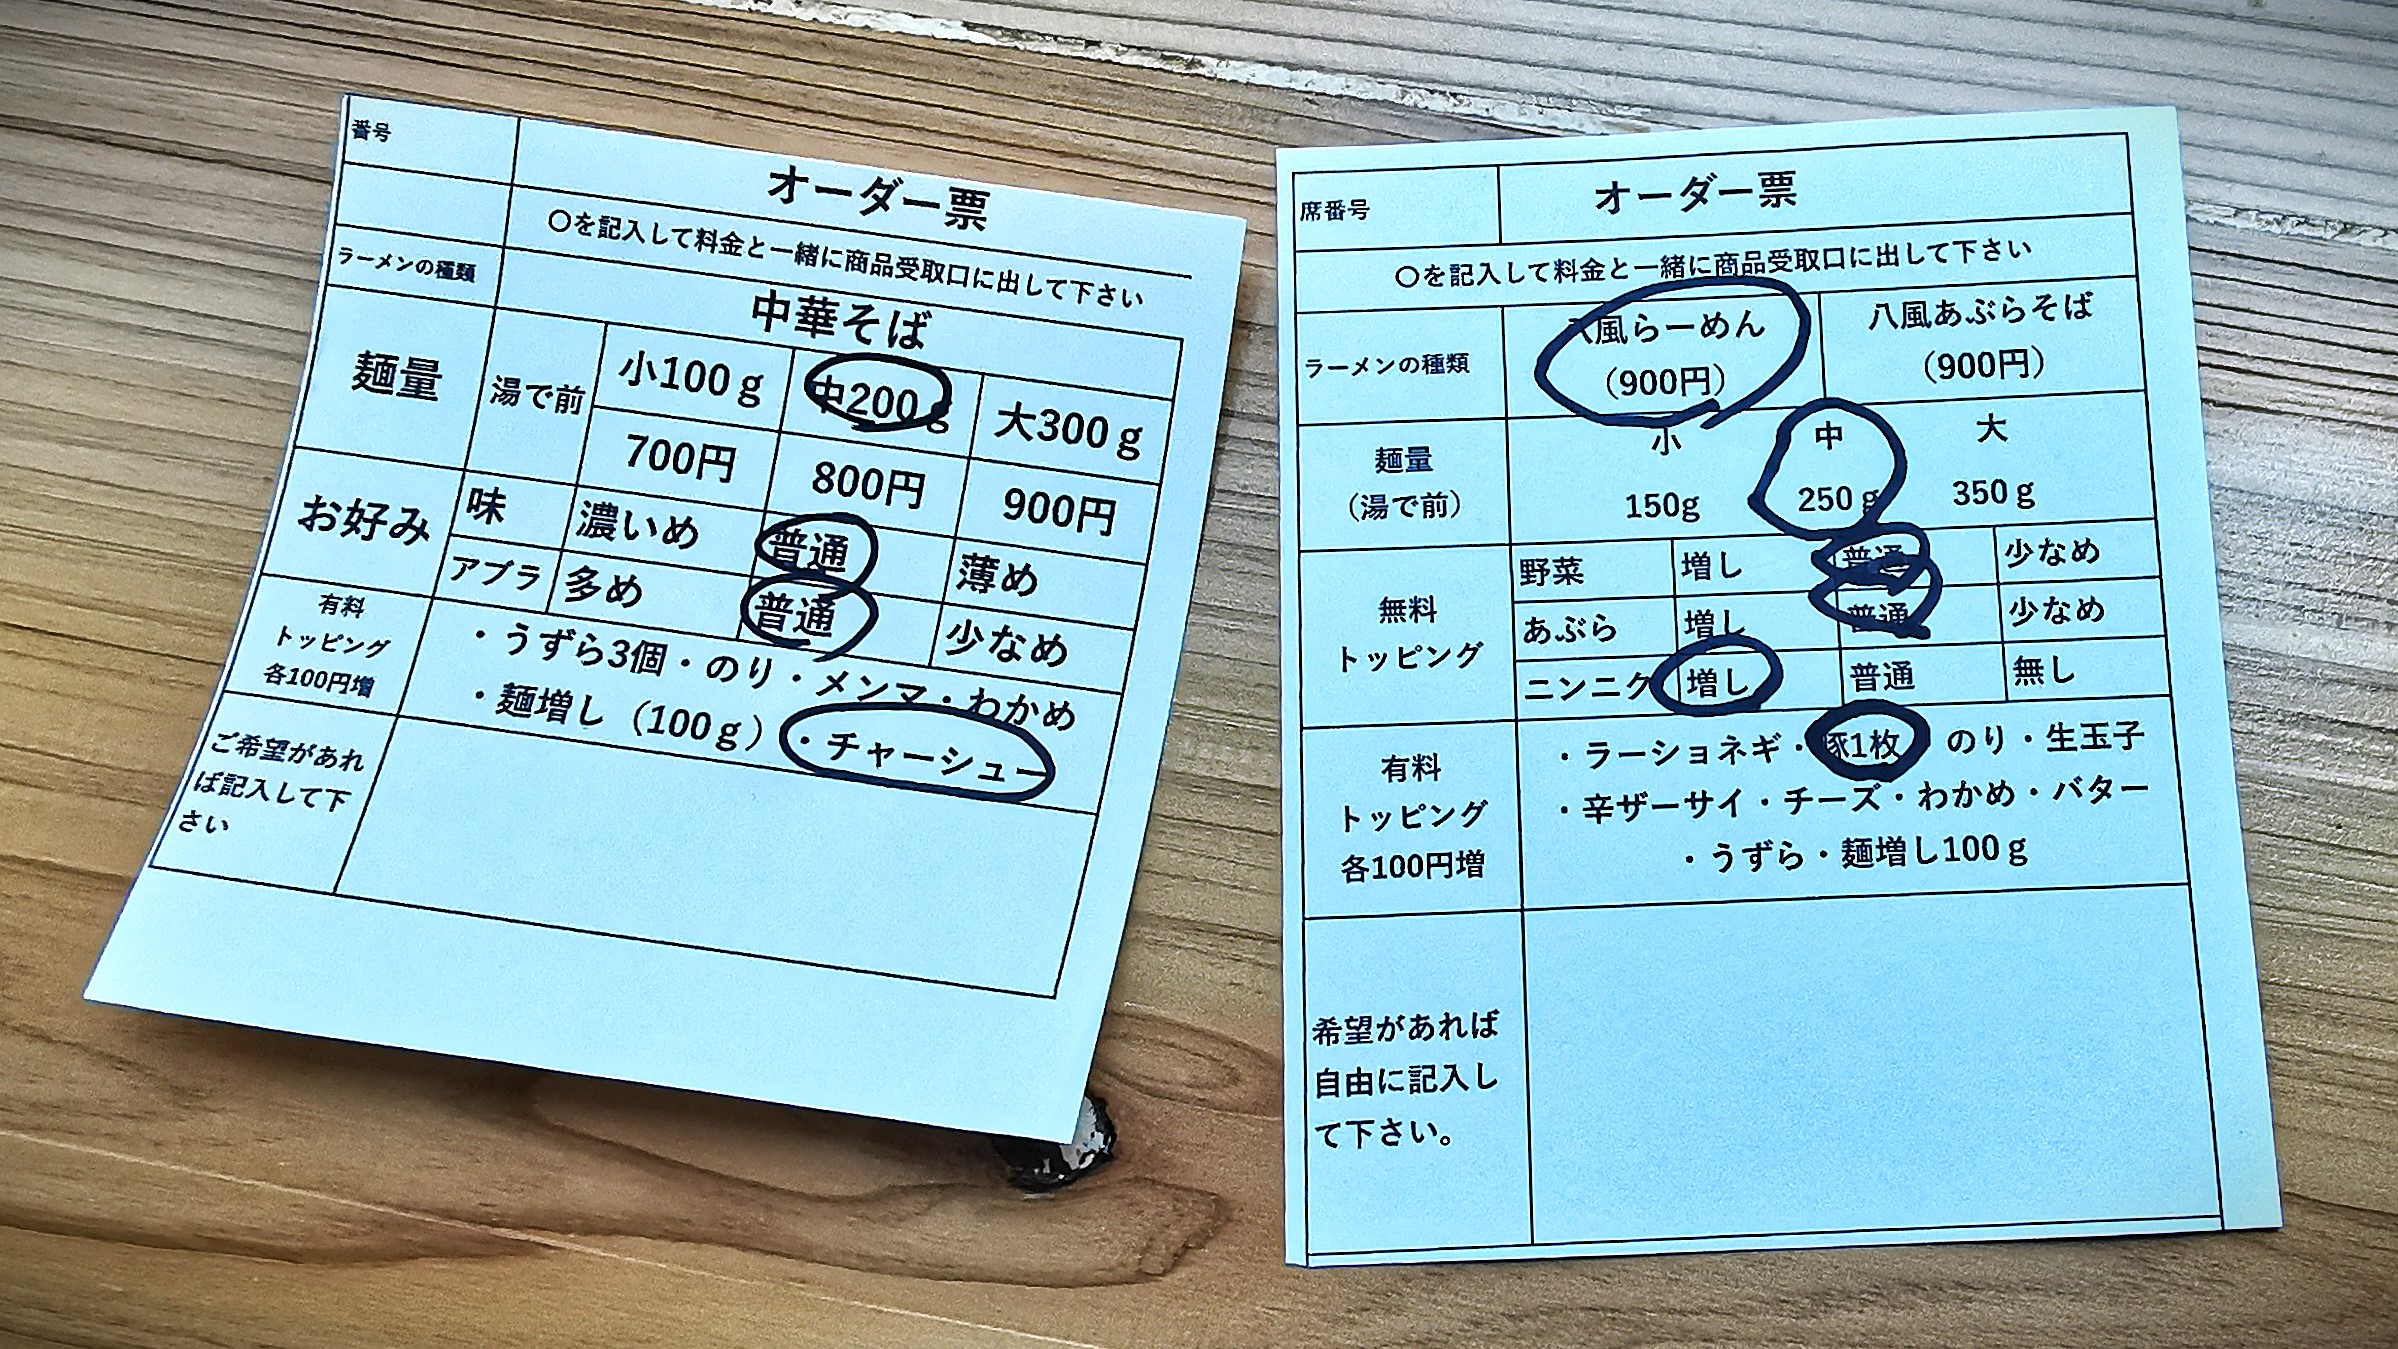 番号
オーダー票
〇を記入して料金と一緒に商品受取口に出して下さい
ラーメンの種類
中華そば
麺量
湯で前
小100g
中200g
大300g
700円
800円
900円
お好み
味
濃いめ
普通
薄め
アブラ
多め
普通
少なめ
有料
トッピング
各100円増
・うずら3個・のり・メンマ・わかめ
・麺増し（100g）・チャーシュー
ご希望があれ
ば記入して下
さい
席番号
オーダー票
〇を記入して料金と一緒に商品受取口に出して下さい
ラーメンの種類
八風らーめん
（900円）
八風あぶらそば
（900円）
麺量
（湯で前）
小
中
大
150g
250g
350g
無料
トッピング
野菜
増し
普通
少なめ
あぶら
増し
普通
少なめ
ニンニク
増し
普通
無し
有料
トッピング
各100円増
・ラーショネギ・豚1枚・のり・生玉子
・辛ザーサイ・チーズ・わかめ・バター
・うずら・麺増し100g
希望があれば
自由に記入し
て下さい。